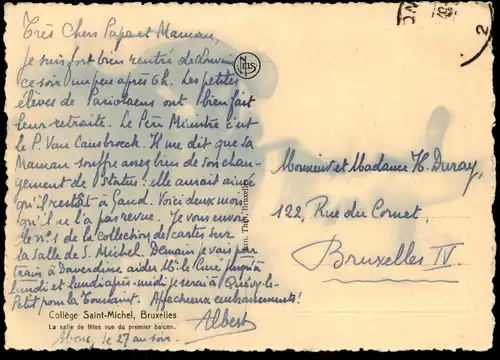 Très Chers Papa et Maman,
Je suis fort bien rentré de Louvain
ce soir un peu après 6h. Les petites
élèves de Pariotaens ont bien fait
leur retraite. Le Père Ministre c'est
le P. Van Cambroeck. Il me dit que sa
Maman souffre assez bien de son chan-
gement de status: elle aurait aimé
qu'il restât à Gand. Voici deux mois
qu'il ne l'a pas revue. Je vous envoie
le n°1 de la collection de cartes sur
la Salle de S. Michel. Demain je vais par
train à Daverdisse aider M. le Curé jusqu'à
lundi et lundi après-midi je serai à Quévy-le-
Petit pour la Toussaint. Affectueux embrassements!
Albert
Collège Saint-Michel, Bruxelles
La salle de fêtes vue du premier balcon.
le 27 au soir.
NELS
Thill, Bruxelles
Monsieur et Madame H. Duray,
122, Rue du Cornet,
Bruxelles IV.
2